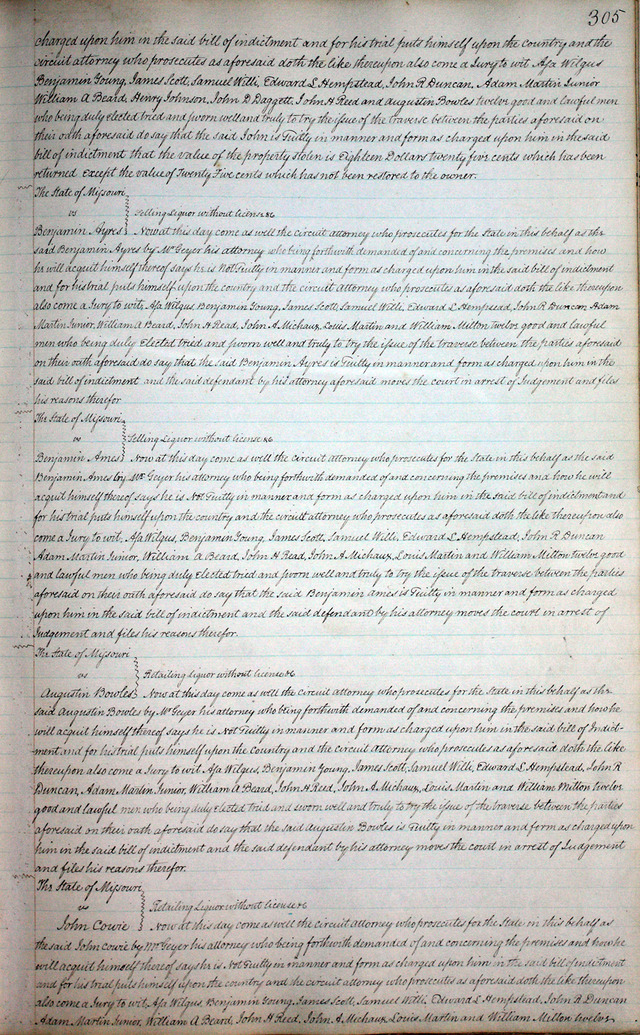 305
charged upon him in the said bill of indictment and for his trial puts himself upon the country and the
circuit attorney who prosecutes as aforesaid doth the like thereupon also come a Jury to wit Asa Wilgus
Benjamin Young, James Scott, Samuel Willi, Edward S Hempstead, John R Duncan, Adam Martin Junior
William A Beard, Henry Johnson, John D Daggett, John H Reed and Augustin Bowles twelve good and lawful men
who being duly elected tried and sworn well and truly to try the issue of the traverse between the parties aforesaid on
their oath aforesaid do say that the said John is Guilty in manner and form as charged upon him in the said
bill of indictment that the value of the property stolen is Eighteen Dollars twenty five cents which has been
returned Except the value of Twenty Five cents which has not been restored to the owner.
The State of Missouri
vs Selling Liquor without license &c
Benjamin Ayres Now at this day come as well the circuit attorney who prosecutes for the State in this behalf as the
said Benjamin Ayres by Mr Geyer his attorney who being forthwith demanded of and concerning the premises and how
he will acquit himself thereof says he is Not Guilty in manner and form as charged upon him in the said bill of indictment
and for his trial puts himself upon the country and the circuit attorney who prosecutes as aforesaid doth the like thereupon
also come a Jury to wit, Asa Wilgus, Benjamin Young, James Scott, Samuel Willi, Edward S Hempstead, John R Duncan Adam
Martin Junior, William A Beard, John H Read, John A Michaux, Louis Martin and William Milton twelve good and lawful
men who being duly Elected tried and sworn well and truly to try the issue of the traverse between the parties aforesaid
on their oath aforesaid do say that the said Benjamin Ayres is Guilty in manner and form as charged upon him in the
said bill of indictment and the said defendant by his attorney aforesaid moves the court in arrest of Judgement and files
his reasons therefor
The State of Missouri
vs Selling Liquor without license &c
Benjamin Ames Now at this day come as well the circuit attorney who prosecutes for the State in this behalf as the said
Benjamin Ames by Mr Geyer his attorney who being forthwith demanded of and concerning the premises and how he will
acquit himself thereof says he is Not Guilty in manner and form as charged upon him in the said bill of indictment and
for his trial puts himself upon the country and the circuit attorney who prosecutes as aforesaid doth the like thereupon also
come a Jury to wit, Asa Wilgus, Benjamin Young, James Scott, Samuel Willi, Edward L Hempstead, John R Duncan
Adam Martin Junior, William A Beard, John H Read, John A Michaux, Louis Martin and William Milton twelve good
and lawful men who being duly Elected tried and sworn well and truly to try the issue of the traverse between the parties
aforesaid on their oath aforesaid do say that the said Benjamin Ames is Guilty in manner and form as charged
upon him in the said bill of indictment and the said defendant by his attorney moves the court in arrest of
Judgement and files his reasons therefor.
The State of Missouri
vs Retailing liquor without license &c
Augustin Bowles Now at this day come as well the Circuit Attorney who prosecutes for the State in this behalf as the
said Augustin Bowles by Mr Geyer his attorney who being forthwith demanded of and concerning the premises and how he
will acquit himself thereof says he is Not Guilty in manner and form as charged upon him in the said bill of Indict-
ment and for his trial puts himself upon the Country and the Circuit Attorney who prosecutes as aforesaid doth the like
thereupon also come a Jury to wit Asa Wilgus, Benjamin Young, James Scott, Samuel Willi, Edward S Hempstead, John R
Duncan, Adam Martin Junior, William A Beard, John H Reed, John A Michaux, Louis Martin and William Milton twelve
good and lawful men who being duly elected tried and sworn well and truly to try the issue of the traverse between the parties
aforesaid on their oath aforesaid do say that the said Augustin Bowles is Guilty in manner and form as charged upon
him in the said bill of indictment and the said defendant by his attorney moves the court in arrest of Judgement
and files his reasons therefor.
The State of Missouri
vs Retailing Liquor without license &c
John Cowie Now at this day come as well the circuit attorney who prosecutes for the State in this behalf as
the said John Cowie by Mr Geyer his attorney who being forthwith demanded of and concerning the premises and how he
will acquit himself thereof says he is Not Guilty in manner and form as charged upon him in the said bill of indictment
and for his trial puts himself upon the country and the circuit attorney who prosecutes as aforesaid doth the like thereupon
also come a Jury to wit, Asa Wilgus, Benjamin Young, James Scott, Samuel Willi, Edward S Hempstead, John R Duncan
Adam Martin Junior, William A Beard, John H Reed, John A Michaux, Louis Martin and William Milton twelve